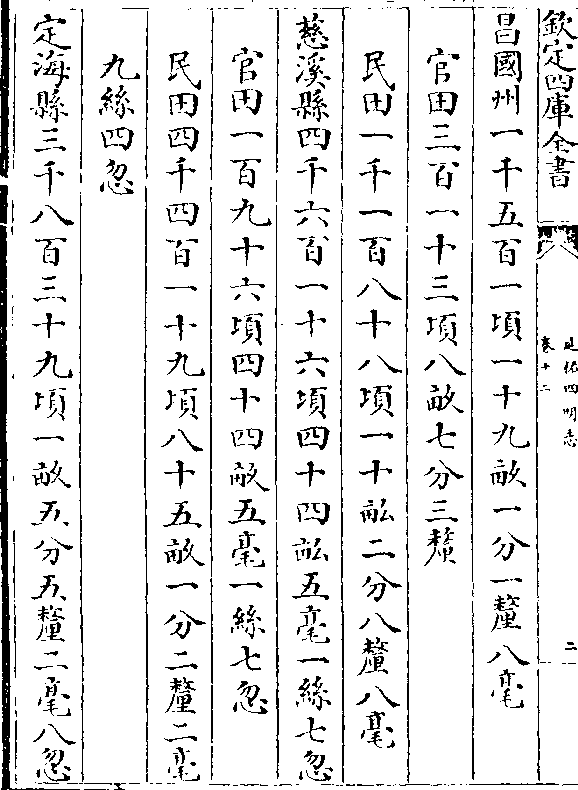 欽定四庫全書
延祐四明志
卷十二
二
昌國州一千五百一頃一十九畝一分一釐八毫
官田三百一十三頃八畝七分三釐
民田一千一百八十八頃一十畝二分八釐八毫
慈溪縣四千六百一十六頃四十四畝五毫一絲七忽
官田一百九十六頃四十四畝五毫一絲七忽
民田四千四百一十九頃八十五畝一分二釐二毫
九絲四忽
定海縣三千八百三十九頃一畝五分五釐二毫八忽